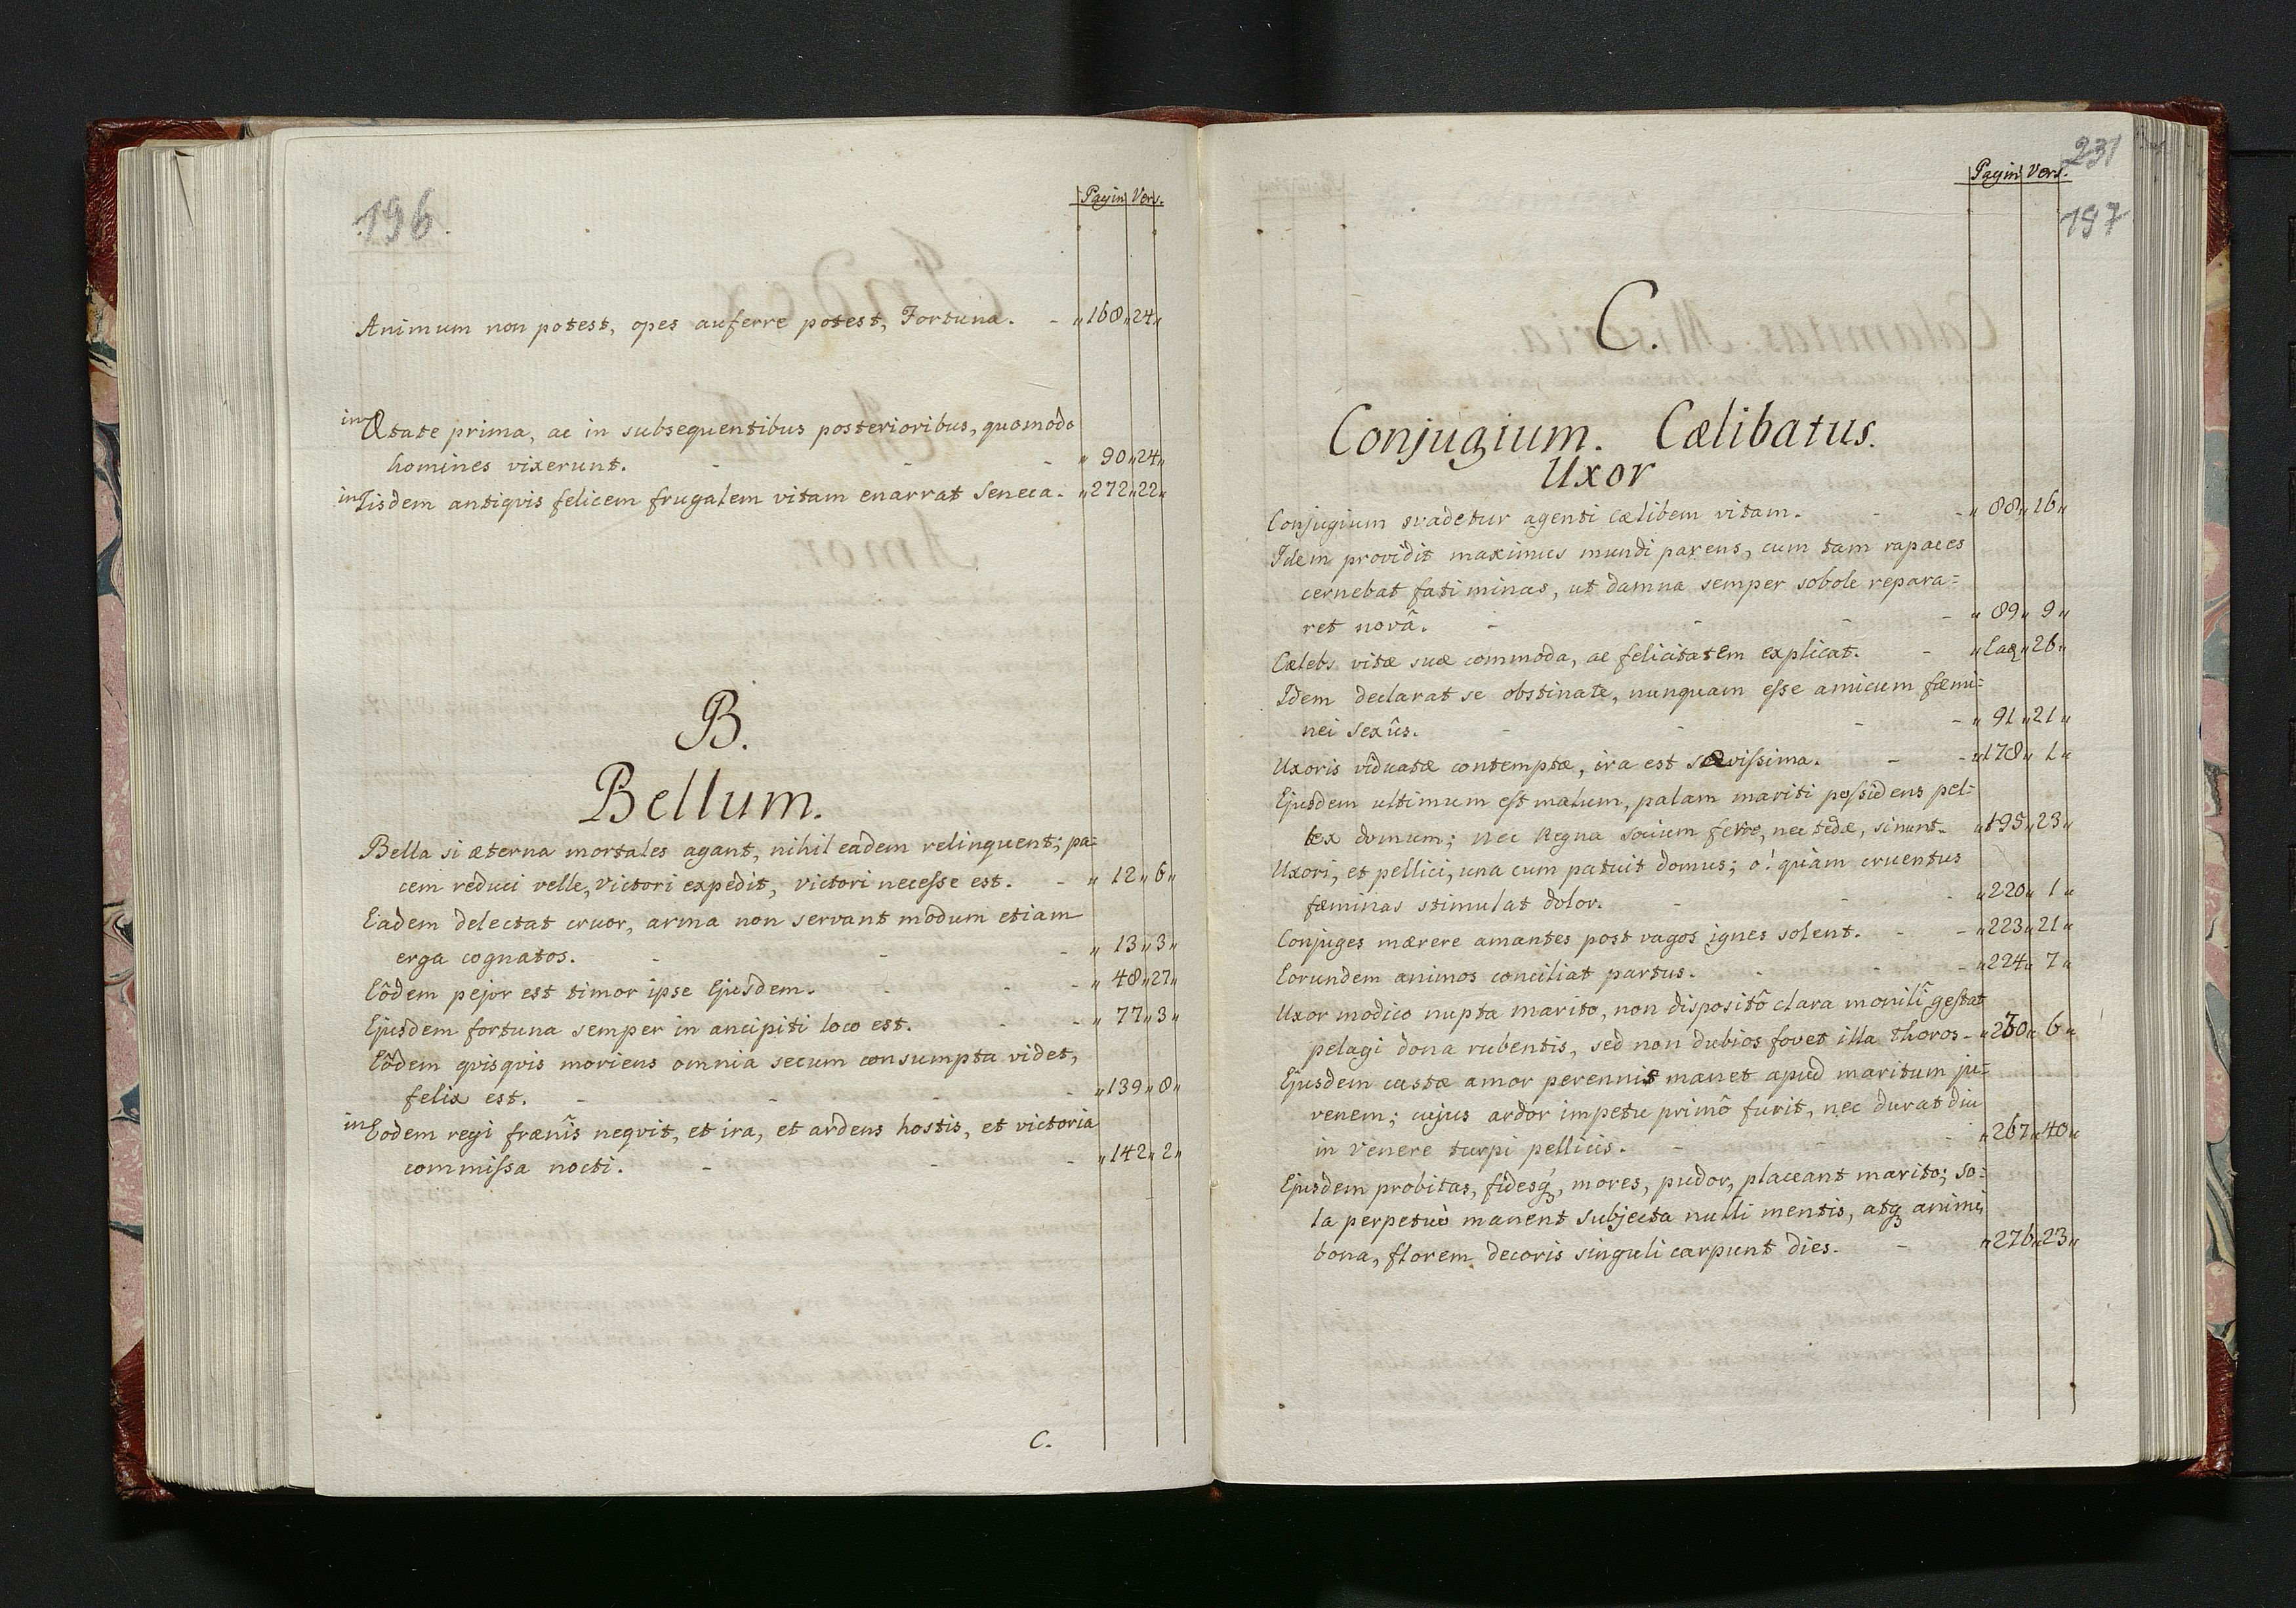 196.
Pagin Vers.
Animum non potest, opes auferre potest, Fortuna. - „168„24„
in Ætate prima, ac in subsequentibus posterioribus, quomodo
homines vixerunt. - - - „ 90„24„
in Iisdem antiqvis felicem frugalem vitam enarrat Seneca. „272„22„
B.
Bellum.
Bella si æterna mortales agant, nihil eadem relinquent; pa=
cem reduci velle, Victori expedit, victori necesse est. - „ 12„6„
Eadem delectat cruor, arma non servant modum etiam
erga cognatos. - - - „ 13„3„
Eôdem pejor est timor ipse Ejusdem. - - - „ 48„27„
Ejusdem fortuna semper in ancipiti loco est. - - „ 77„3„
Eôdem qvisqvis moriens omnia secum consumpta videt,
felix est. - - - - „139„8„
in Eodem regi frænîs neqvit, et ira, et ardens hostis, et victoria
commissa nocti. - - - „142„2„
C.
231
Pagin Vers.
197
C.
Conjugium. Cælibatus.
Uxor
Conjugium svadetur agenti cælibem vitam. - - „ 88„16„
Idem providit maximus mundi parens, cum tam rapaces
cernebat fati minas, ut damna semper sobole repara=
ret novâ. - - - - „ 89„ 9„
Cælebs vitæ suæ commoda, ac felicitatem explicat. - „ Eaq„26„
Idem declarat se obstinate, nunquam esse amicum fæmi=
nei sexûs. - - - - „ 91„21„
Uxoris viduatæ contemptæ, ira est sævissima. - - „178„ 1„
Ejusdem ultimum est malum, palam mariti possidens pel=
lex domum; nec Regna socium ferre, nec tedæ, sinunt. „195„23„
Uxori, et pellici, una cum patuit domus; o! quàm cruentus
fæminas stimulat dolor. - - - „220„ 1„
Conjuges mærere amantes post vagos ignes solent. - - „223„21„
Eorundem animos conciliat partus. - - - „224„ 7„
Uxor modico nupta marito, non dispositô clara monilî gestat
pelagi dona rubentis, sed non dubios fovet illa thoros - „260„ 6„
Ejusdem castæ amor perennis manet apud maritum ju=
venem; cujus ardor impetu primô furit, nec durat diu
in Venere turpi pellicis. - - - „267„40„
Ejusdem probitas, fidesq́ȝ, mores, pudor, placeant marito; so=
la perpetuò manent subjecta nulli mentis, atqȝ animi
bona, florem decoris singuli carpunt dies. - „276„23„